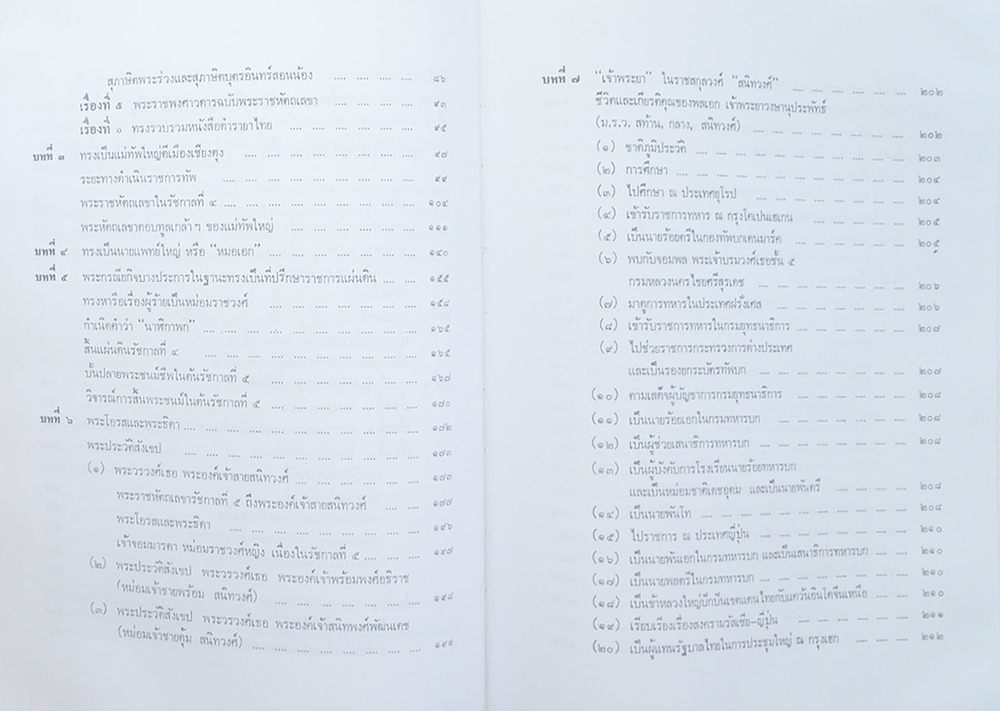 สุภาษิตพระร่วงและสุภาษิตบุตรอินทร์สอนน้อง .... .... .... .... ๘๖
เรื่องที่ ๕ พระราชพงศาวดารฉบับพระราชหัตถเลขา .... .... .... .... ๙๓
เรื่องที่ ๖ ทรงรวบรวมหนังสือตำรายาไทย .... .... .... .... .... .... ๙๕
บทที่ ๓ ทรงเป็นแม่ทัพใหญ่ตีเมืองเชียงตุง .... .... .... .... .... .... .... ๙๗
ระยะทางดำเนินราชการทัพ .... .... .... .... .... .... .... .... ๙๙
พระราชหัตถเลขาในรัชกาลที่ ๔ .... .... .... .... .... .... .... .... ๑๐๔
พระหัตถเลขาตอบทูลเกล้าฯ ของแม่ทัพใหญ่ .... .... .... .... .... .... ๑๑๑
บทที่ ๔ ทรงเป็นนายแพทย์ใหญ่ หรือ “หมอเอก” .... .... .... .... .... .... ๑๔๐
บทที่ ๕ พระกรณียกิจบางประการในฐานะทรงเป็นที่ปรึกษาราชการแผ่นดิน .... .... ๑๕๕
ทรงหารือเรื่องผู้ร้ายเป็นหม่อมราชวงศ์ .... .... .... .... .... .... ๑๕๘
กำเนิดคำว่า “นาฬิกาพก” .... .... .... .... .... .... .... .... ๑๖๕
สิ้นแผ่นดินรัชกาลที่ ๔ .... .... .... .... .... .... .... .... ๑๖๕
บั้นปลายพระชนม์ชีพในต้นรัชกาลที่ ๕ .... .... .... .... .... .... ๑๖๗
วิจารณ์การสิ้นพระชนม์ในต้นรัชกาลที่ ๕ .... .... .... .... .... .... ๑๗๐
บทที่ ๖ พระโอรสและพระธิดา .... .... .... .... .... .... .... .... .... ๑๗๒
พระประวัติสังเขป .... .... .... .... .... .... .... .... .... ๑๗๓
(๑) พระวรวงศ์เธอ พระองค์เจ้าสายสนิทวงศ์ .... .... .... .... .... ๑๗๓
พระราชหัตถเลขารัชกาลที่ ๕ ถึงพระองค์เจ้าสายสนิทวงศ์ .... .... ๑๗๗
พระโอรสและพระธิดา .... .... .... .... .... .... .... ๑๙๖
เจ้าจอมมารดา หม่อมราชวงศ์หญิง เนื่องในรัชกาลที่ ๕ .... .... .... ๑๙๗
(๒) พระประวัติสังเขป พระวรวงศ์เธอ พระองค์เจ้าพร้อมพงศ์อธิราช
(หม่อมเจ้าชายพร้อม สนิทวงศ์) .... .... .... .... .... .... ๑๙๘
(๓) พระประวัติสังเขป พระวรวงศ์เธอ พระองค์เจ้าสนิทพงศ์พัฒนเดช
(หม่อมเจ้าชายตุ้ม สนิทวงศ์) .... .... .... .... .... .... ๑๙๙
บทที่ ๗ “เจ้าพระยา” ในราชสกุลวงศ์ “สนิทวงศ์” .... .... .... .... .... ๒๐๒
ชีวิตและเกียรติคุณของพลเอก เจ้าพระยาวงษานุประพัทธ์
(ม.ร.ว. สท้าน, กลาง, สนิทวงศ์) .... .... .... .... .... .... ๒๐๒
(๑) ชาติภูมิประวัติ .... .... .... .... .... .... .... .... ๒๐๓
(๒) การศึกษา .... .... .... .... .... .... .... .... .... ๒๐๔
(๓) ไปศึกษา ณ ประเทศยุโรป .... .... .... .... .... .... ๒๐๔
(๔) เข้ารับราชการทหาร ณ กรุงโคเปนเฮเกน .... .... .... .... ๒๐๕
(๕) เป็นนายร้อยตรีในกองทัพบกเดนมาร์ค .... .... .... .... .... ๒๐๕
(๖) พบกับจอมพล พระเจ้าบรมวงศ์เธอชั้น ๕
กรมหลวงนครไชยศรีสุรเดช .... .... .... .... .... .... ๒๐๖
(๗) มาดูการทหารในประเทศฝรั่งเศส .... .... .... .... .... ๒๐๖
(๘) เข้ารับราชการทหารในกรมยุทธนาธิการ .... .... .... .... ๒๐๗
(๙) ไปช่วยราชการกระทรวงการต่างประเทศ
และเป็นรองยกระบัตรทัพบก .... .... .... .... .... .... ๒๐๗
(๑๐) ตามเสด็จผู้บัญชาการกรมยุทธนาธิการ .... .... .... .... ๒๐๘
(๑๑) เป็นนายร้อยเอกในกรมทหารบก .... .... .... .... .... ๒๐๘
(๑๒) เป็นผู้ช่วยเสนาธิการทหารบก .... .... .... .... .... ๒๐๘
(๑๓) เป็นผู้บังคับการโรงเรียนนายร้อยทหารบก
และเป็นหม่อมชาติเดชอุดม และเป็นนายพันตรี .... .... .... ๒๐๘
(๑๔) เป็นนายพันโท .... .... .... .... .... .... .... .... ๒๐๘
(๑๕) ไปราชการ ณ ประเทศญี่ปุ่น .... .... .... .... .... .... ๒๑๐
(๑๖) เป็นนายพันเอกในกรมทหารบก และเป็นเสนาธิการทหารบก .... .... ๒๑๐
(๑๗) เป็นนายพลตรีในกรมทหารบก .... .... .... .... .... .... ๒๑๐
(๑๘) เป็นข้าหลวงใหญ่ปักปันเขตแดนไทยกับแคว้นอินโดจีนเหนือ .... .... ๒๑๐
(๑๙) เรียบเรียงเรื่องสงครามรัสเซีย-ญี่ปุ่น .... .... .... .... .... ๒๑๑
(๒๐) เป็นผู้แทนรัฐบาลไทยในการประชุมใหญ่ ณ กรุงเฮก .... .... .... ๒๑๒